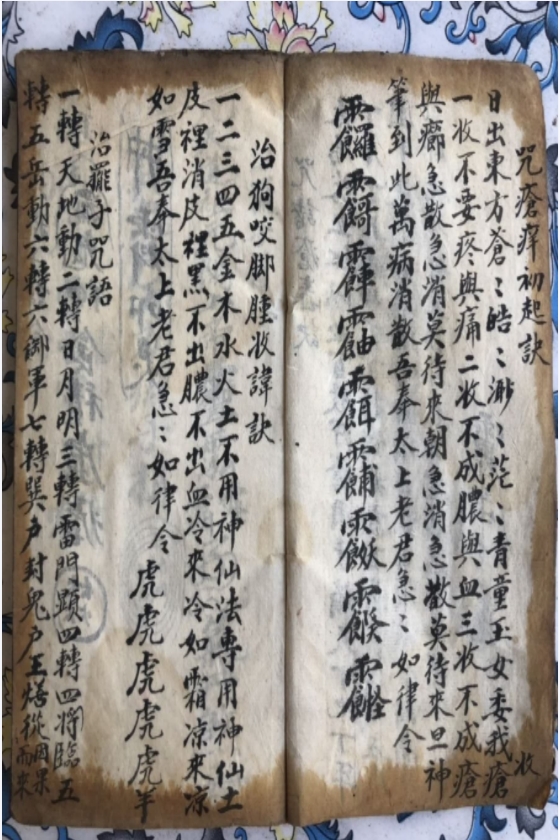 咒瘡痒初起訣
日出東方蒼〻皓〻渺〻茫〻青童玉女委我收瘡
一收不要疼與痛二收不成膿與血三收不成瘡
與癤急散急消莫待來朝急消急散莫待來旦神
筆到此萬病消散吾奉太上老君急〻如律令
治狗咬脚腫收諱訣
一二三四五金木水火土不用神仙法專用神仙土
皮裡消皮裡黑不出膿不出血冷來冷如霜凉來凉
如雪吾奉太上老君急〻如律令虎虎虎虎虎羊
治羅子咒語
一轉天地動二轉日月明三轉雷門顯四轉四將臨五
轉五岳動六轉六御軍七轉巽户封鬼户王從因果而來